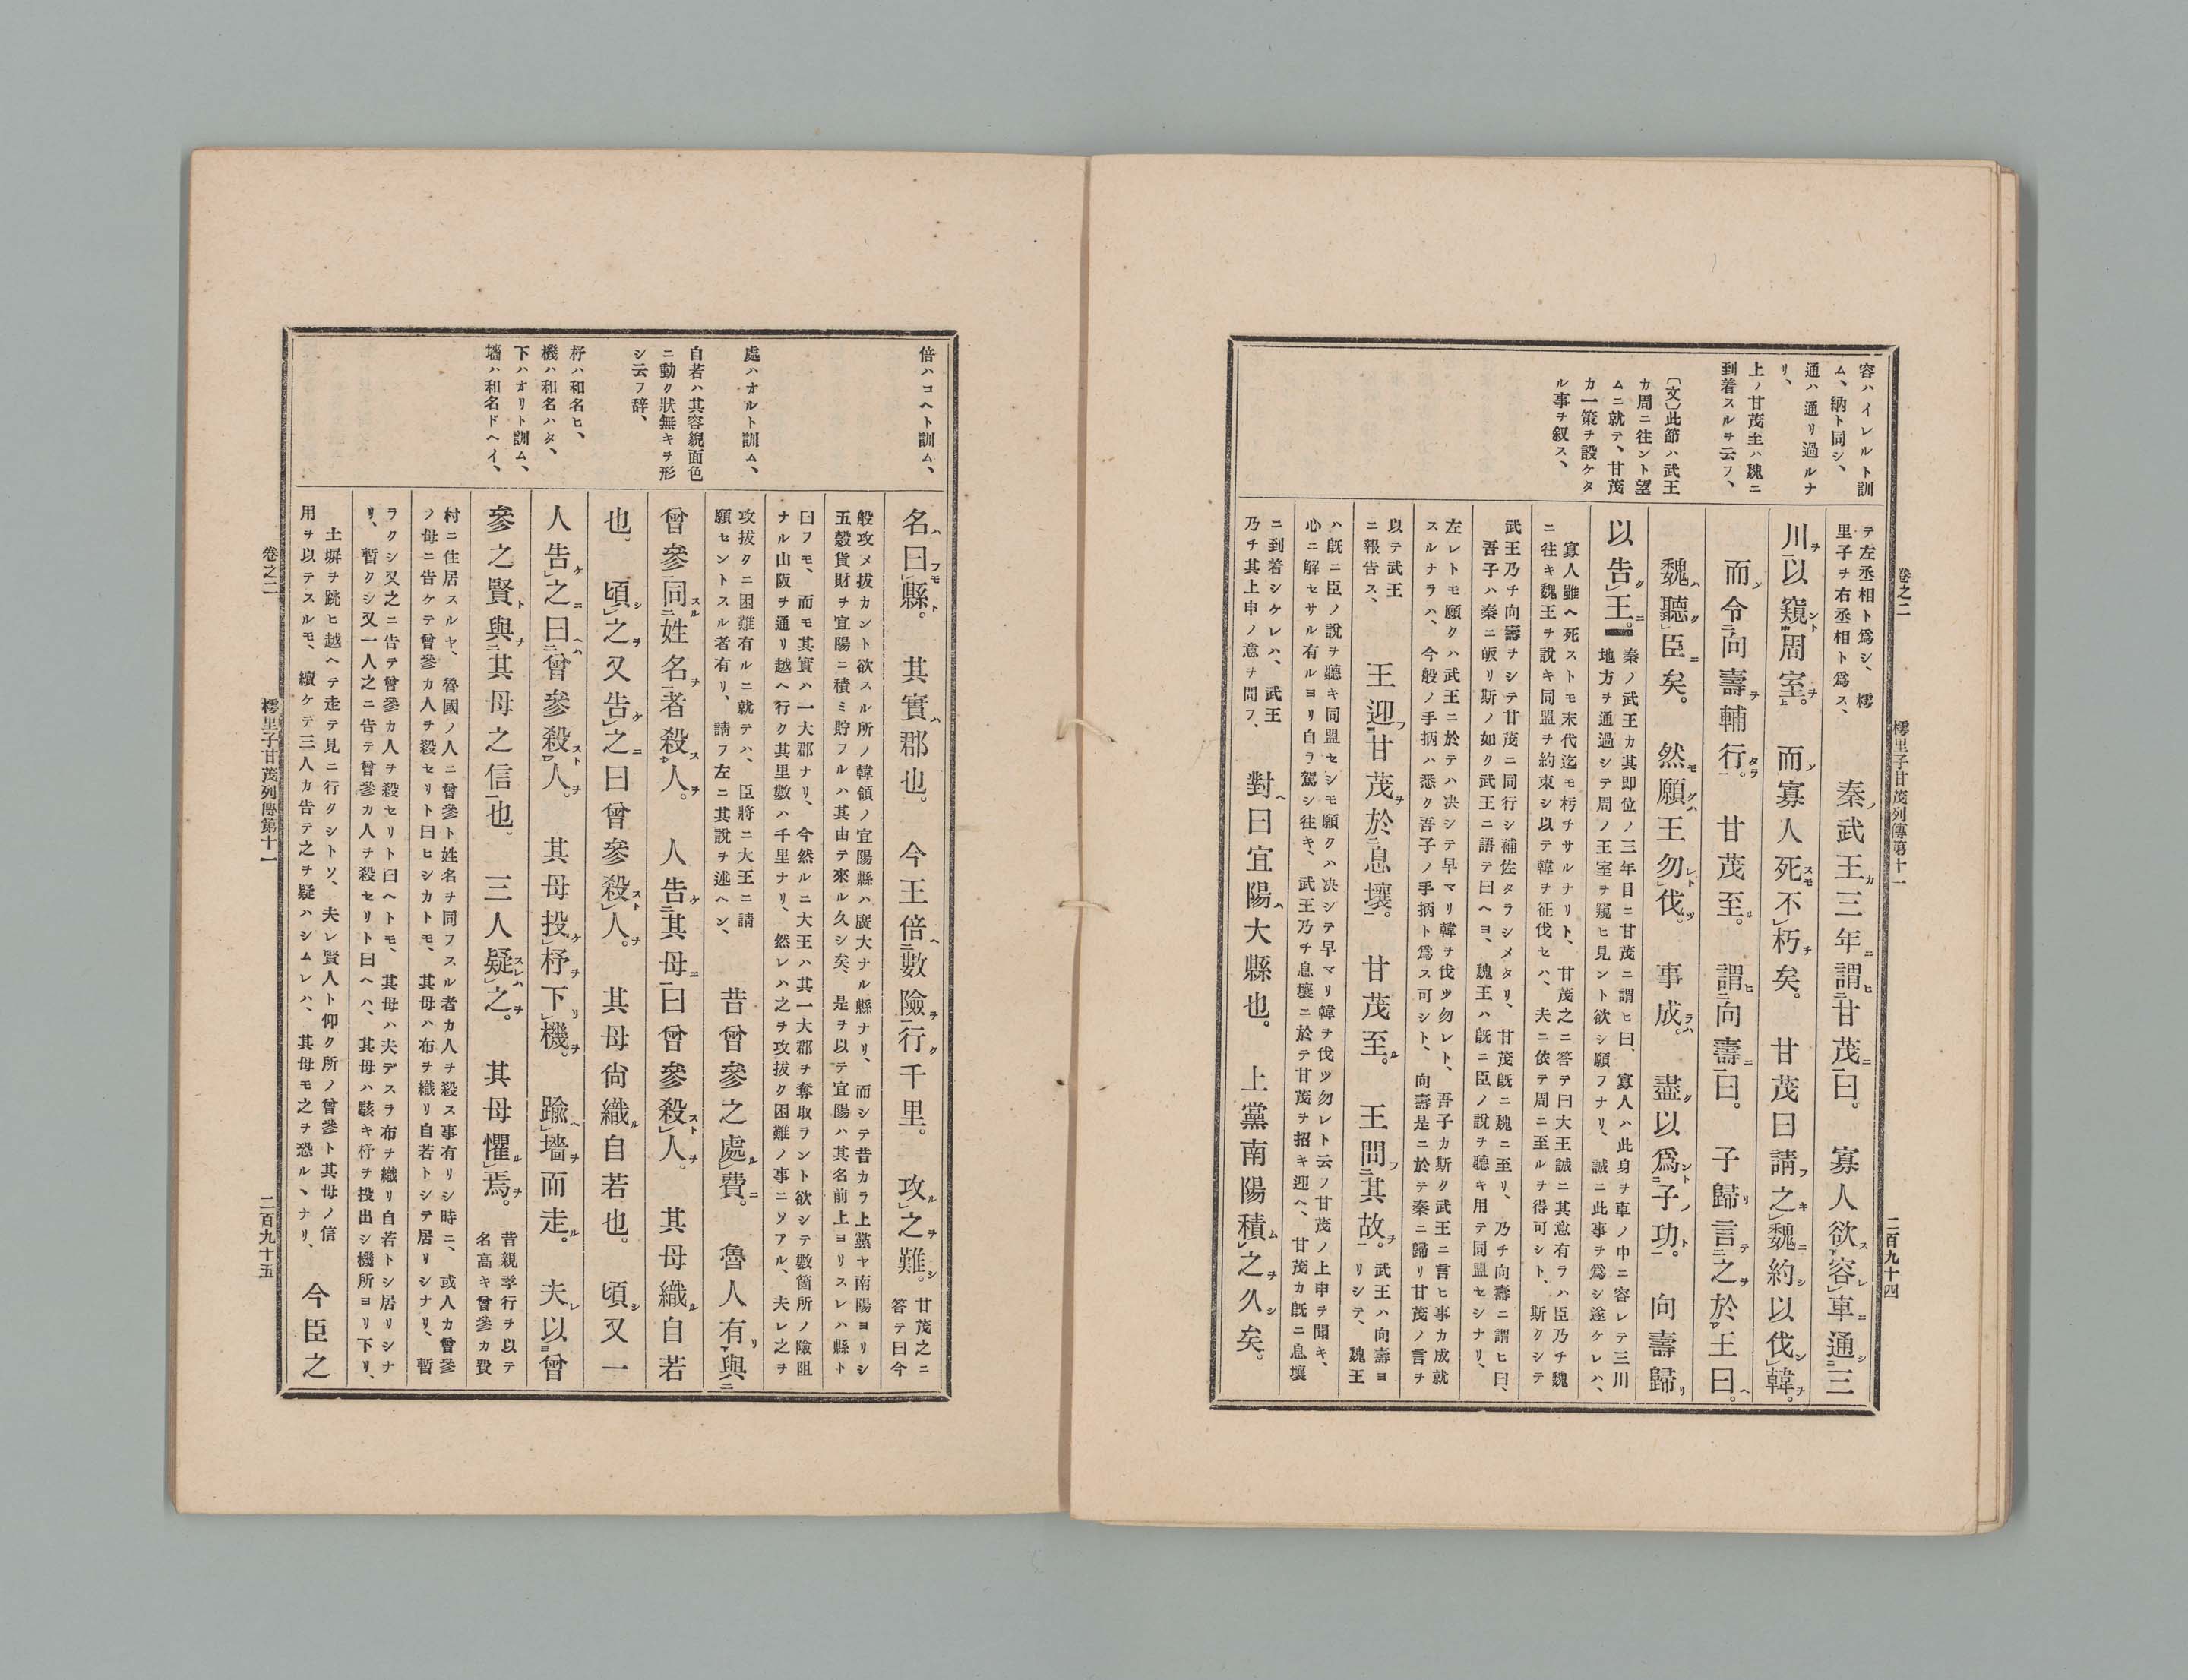 卷之二
樗里子甘茂列傳第十一
二百九十四
容ハイレルト訓
ム、納ト同シ、
通ハ通リ過ルナ
リ、
上ノ甘茂至ハ魏ニ
到着スルヲ云フ、
〔文〕此節ハ武王
カ周ニ往ント望
ムニ就テ、甘茂
カ一策ヲ設ケタ
ル事ヲ叙ス、
テ左丞相ト爲シ、樗
里子ヲ右丞相ト爲ス、
秦ノ武王カ三年ニ謂ヒ二甘茂ニ一曰。 寡人欲ス下容レ」車ニ通シ二三
川ヲ一以窺ント中周室ヲ上。 而ソ寡人死スモ不」朽チ矣。 甘茂曰請フ之」キ魏ニ約シ以伐」ン韓ヲ。
而ソ令二向壽ヲ輔行タラ一。 甘茂至ル。 謂ヒ二向壽ニ一曰。 子歸リ言テ二之ヲ於王一曰ヘ。
魏ハ聽」ク臣ニ矣。 然モ願クハ王勿」レト伐ツ。 事成ラハ。 盡ク以爲ント二子ノ功ト一。 向壽歸リ
以告」ク王ニ。
秦ノ武王カ其即位ノ三年目ニ甘茂ニ謂ヒ曰、寡人ハ此身ヲ車ノ中ニ容レテ三川
地方ヲ通過シテ周ノ王室ヲ窺ヒ見ント欲シ願フナリ、誠ニ此事ヲ爲シ遂ケレハ、
寡人雖ヘ死ストモ末代迄モ朽チサルナリト、甘茂之ニ答テ曰大王誠ニ其意有ラハ臣乃チ魏
ニ往キ魏王ヲ說キ同盟ヲ約束シ以テ韓ヲ征伐セハ、夫ニ依テ周ニ至ルヲ得可シト、斯クシテ
武王乃チ向壽ヲシテ甘茂ニ同行シ補佐タラシメタリ、甘茂既ニ魏ニ至リ、乃チ向壽ニ謂ヒ曰、
吾子ハ秦ニ皈リ斯ノ如ク武王ニ語テ曰ヘヨ、魏王ハ既ニ臣ノ說ヲ聽キ用テ同盟セシナリ、
左レトモ願クハ武王ニ於テハ决シテ早マリ韓ヲ伐ツ勿レト、吾子カ斯ク武王ニ言ヒ事カ成就
スルナラハ、今般ノ手柄ハ悉ク吾子ノ手柄ト爲ス可シト、向壽是ニ於テ秦ニ歸リ甘茂ノ言ヲ
以テ武王
ニ報告ス、
王迎フ二甘茂ヲ於息壤ニ一。 甘茂至ル。 王問フ二其故ヲ一。
武王ハ向壽ヨ
リシテ、魏王
ハ既ニ臣ノ說ヲ聽キ同盟セシモ願クハ决シテ早マリ韓ヲ伐ツ勿レト云フ甘茂ノ上申ヲ聞キ、
心ニ解セサル有ルヨリ自ラ駕シ往キ、武王乃チ息壤ニ於テ甘茂ヲ招キ迎ヘ、甘茂カ既ニ息壤
ニ到着シケレハ、武王
乃チ其上申ノ意ヲ問フ、
對ヘ曰宜陽ハ大縣也。 上黨南陽積」ム之ヲ久シ矣。
倍ハコヘト訓ム、
處ハオルト訓ム、
自若ハ其容貌面色
ニ動ク狀無キヲ形
シ云フ辞、
杼ハ和名ヒ、
機ハ和名ハタ、
下ハオリト訓ム、
墻ハ和名ドヘイ、
名ハ曰」フモ縣ト。 其實ハ郡也。 今王倍ヘ二數險ヲ一行ク千里。 攻」ル之ヲ難シ。
甘茂之ニ
答テ曰今
般攻メ拔カント欲スル所ノ韓領ノ宜陽縣ハ廣大ナル縣ナリ、而シテ昔カラ上黨ヤ南陽ヨリシ
五穀貨財ヲ宜陽ニ積ミ貯フルハ其由テ來ル久シ矣、是ヲ以テ宜陽ハ其名前上ヨリスレハ縣ト
曰フモ、而モ其實ハ一大郡ナリ、今然ルニ大王ハ其一大郡ヲ奪取ラント欲シテ數箇所ノ險阻
ナル山阪ヲ通リ越ヘ行ク其里數ハ千里ナリ、然レハ之ヲ攻拔ク困難ノ事ニソアル、夫レ之ヲ
攻拔クニ困難有ルニ就テハ、臣將ニ大王ニ請
願セントスル者有リ、請フ左ニ其說ヲ述ヘン、
昔曾參之處」ル費ニ。 魯人有リ下與二
曾參一同スル二姓名ヲ一者殺ス上人ヲ。 人告ケ二其母ニ一曰曾參殺」スト人ヲ。 其母織ル自若
也。 頃」シ之ヲ又告」ケ之ニ曰曾參殺」スト人ヲ。 其母尙織ル自若也。 頃シ又一
人告」ケ之ニ曰ヘハ二曾參殺スト人ヲ。 其母投」ケ杼ヲ下」リ機ヲ。 踰」ヘ墻ヲ而走ル。 夫レ以曾
參之賢ト與ヲ二其母之信一也。 三人疑」スレハ之ヲ。 其母懼」ル焉ヲ。
昔親孝行ヲ以テ
名高キ曾參カ費
村ニ住居スルヤ、魯國ノ人ニ曾參ト姓名ヲ同フスル者カ人ヲ殺ス事有リシ時ニ、或人カ曾參
ノ母ニ告ケテ曾參カ人ヲ殺セリト曰ヒシカトモ、其母ハ布ヲ織リ自若トシテ居リシナリ、暫
ラクシ又之ニ告テ曾參カ人ヲ殺セリト曰ヘトモ、其母ハ夫デスラ布ヲ織リ自若トシ居リシナ
リ、暫クシ又一人之ニ告テ曾參カ人ヲ殺セリト曰ヘハ、其母ハ駭キ杼ヲ投出シ機所ヨリ下リ、
土塀ヲ跳ヒ越ヘテ走テ見ニ行クシトソ、夫レ賢人ト仰ク所ノ曾參ト其母ノ信
用ヲ以テスルモ、續ケテ三人カ告テ之ヲ疑ハシムレハ、其母モ之ヲ恐ルヽナリ、
今臣之
卷之二
樗里子甘茂列傳第十一
二百九十五